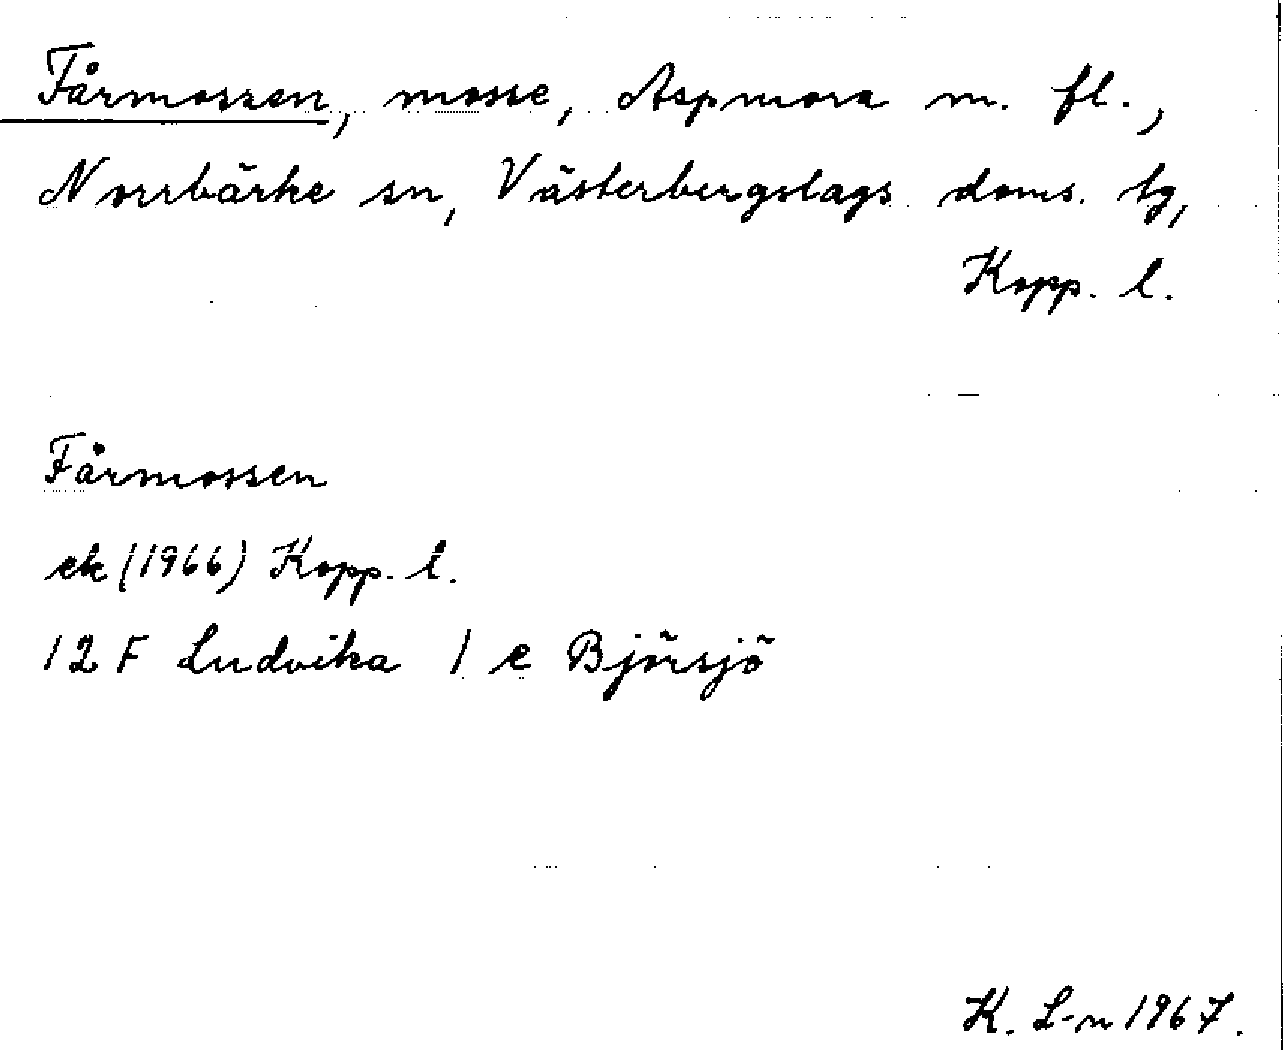 Fårmossen, mosse, Aspmora m. fl.,
Norrbärke sn, Västerbergslags doms. tg,
Kopp. l.
Fårmossen
ek (1966) Kopp. l.
12 F Ludvika 1 e Björsjö
K. L-n 1967.